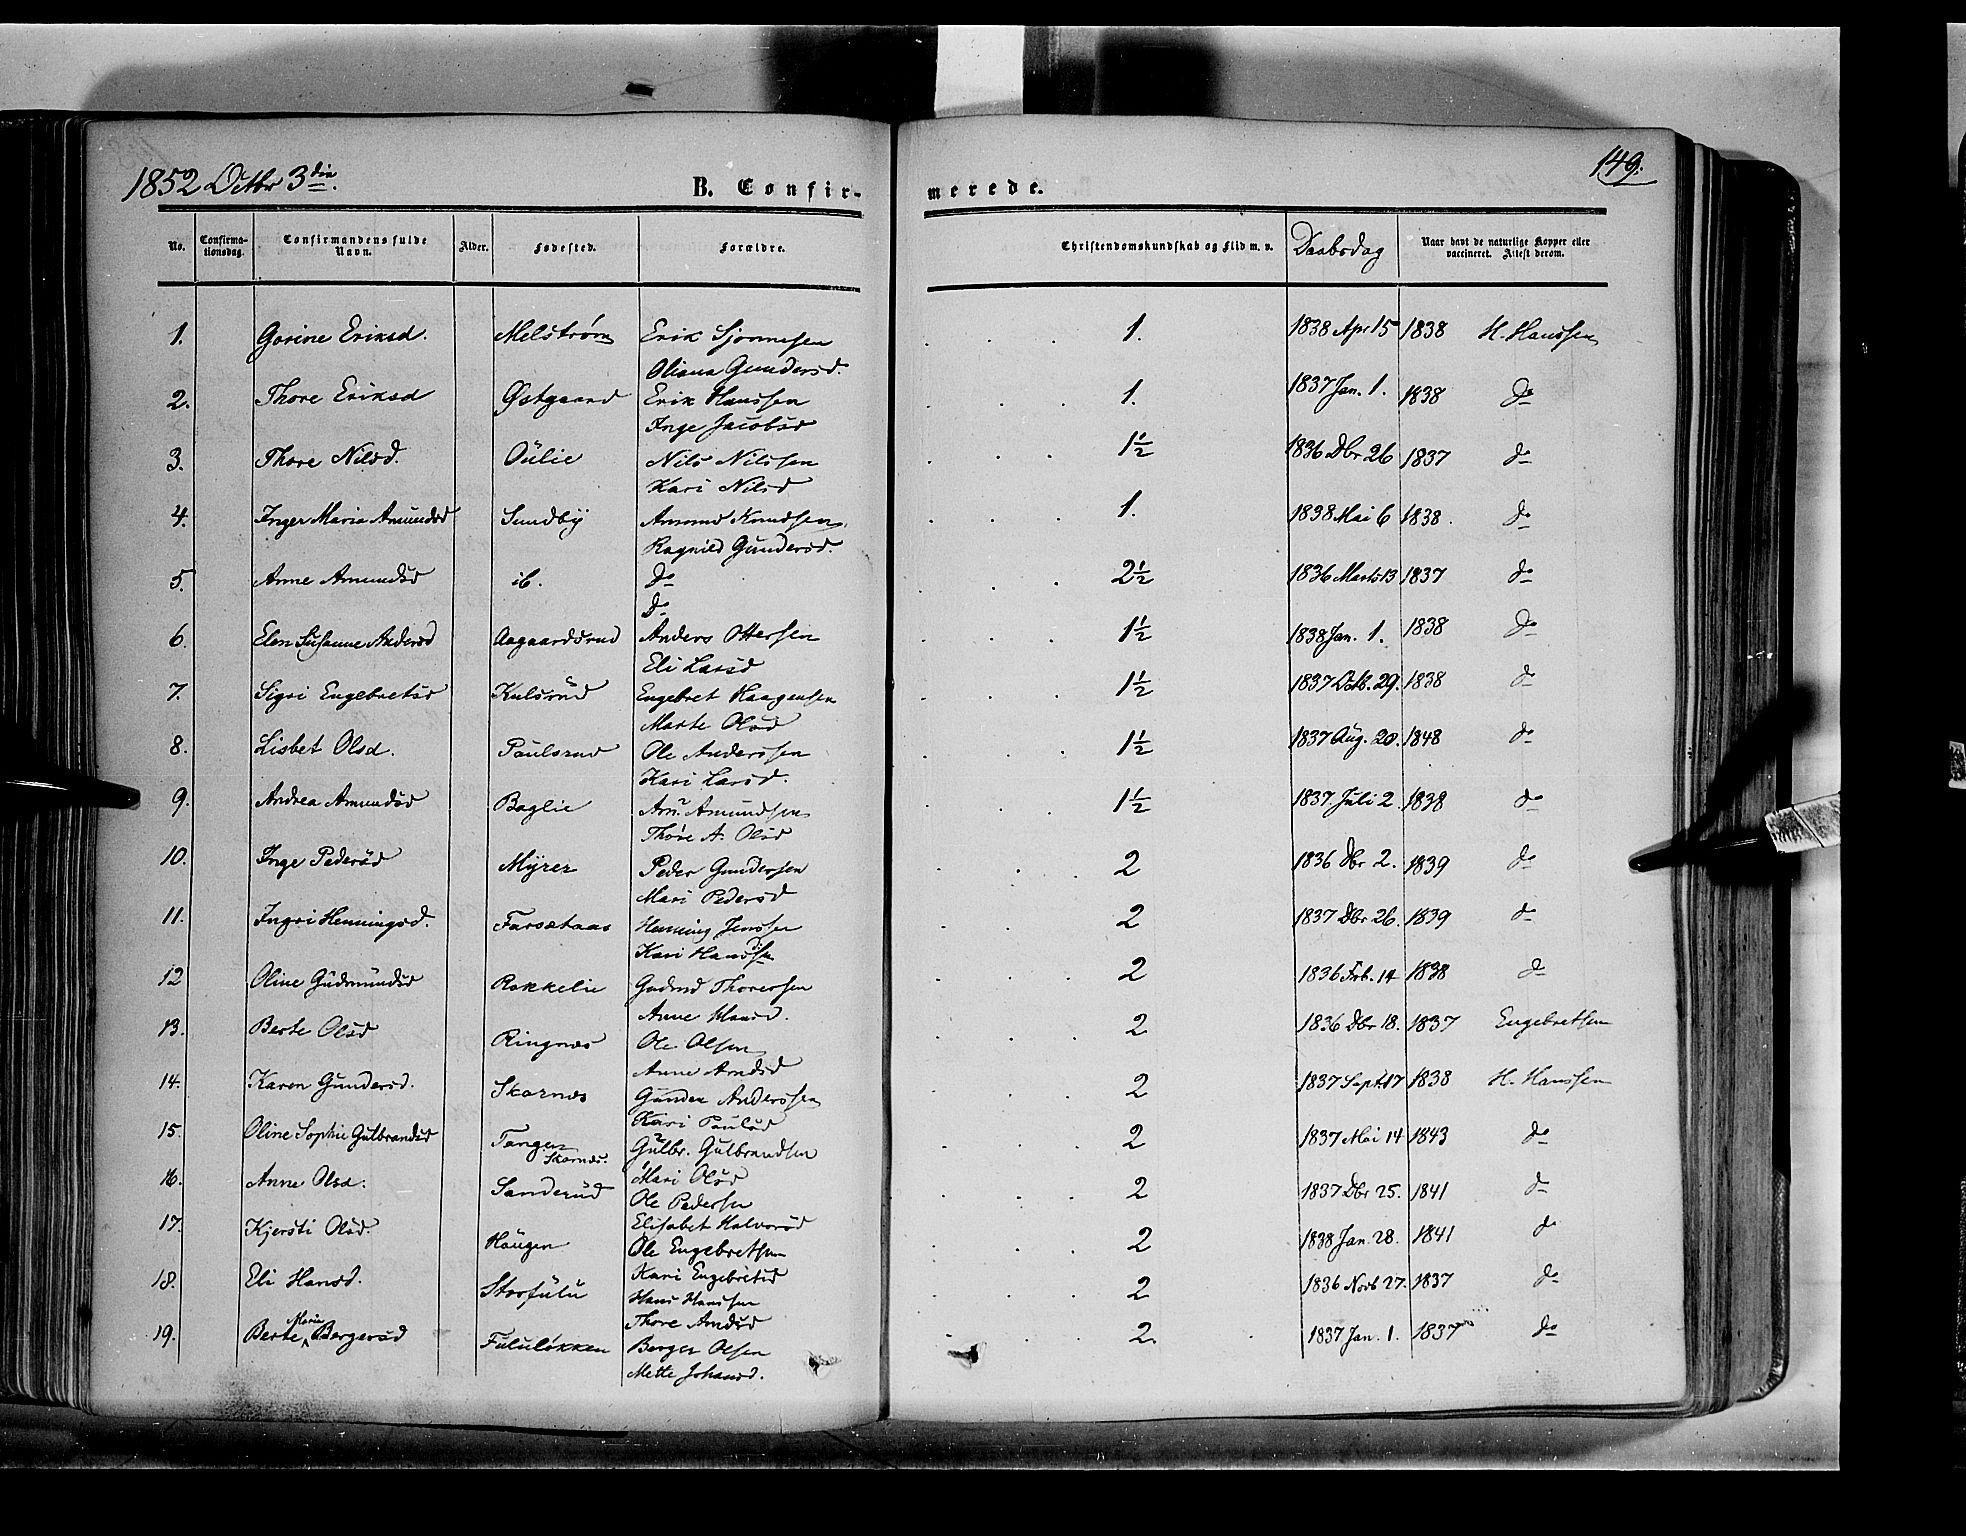 1852 Octbr 3die.
B. Confir-
merede.
149.
No. Confirma-tionsdag. Confirmandens fulde Navn. Alder. Fødested. Forældre. Christendomskundskab og Flid m. v. Daabsdag Naar havt de naturlige Kopper eller vaccineret. Attest derom.
1. Gorine Eriksd. Melstrøm Erik Sjønnesen 1. 1838 Apr 15 1838 H. Hanssen
Oliana Gundersd.
2. Thore Eriksd Østgaard Erik Hanssen 1. 1837 Jan. 1. 1838 do
Inge Jacobsd
3. Thore Nilsd. Oulie Nils Nilssen 1½ 1836 Dbr 26 1837 do
Kari Nilsd
4. Inger Maria Amundsd Sundby Amund Knudsen 1. 1838 Mai 6 1838. do
Ragnild Gundersd.
5. Anne Amundsd ib. do 2½ 1836 Marts 13 1837 do
do
6. Elen Susanne Andersd Aagaardsrud Anders Ottersen 1½ 1838 Jan. 1. 1838 do
Eli Larsd
7. Sigri Engebretsd Kulsrud Engebret Haagensen 1½ 1837 Octb. 29. 1838 do
Marte Olsd
8. Lisbet Olsd. Paulsrud Ole Anderssen 1½ 1837 Aug. 20. 1848 do
Kari Larsd.
9. Andrea Amundsd Baglie Am. Amundsen 1½ 1837 Juli 2. 1838 do
Thore A. Olsd
10. Inge Pedersd Myrer Peder Gundersen 2 1836 Dbr 2. 1839 do
Mari Pedersd
11. Ingri Henningsd. Farsætaas Henning Jenssen 2 1837 Dbr 26. 1839 do
Kari Hansd
12 Oline Gudmundsd Rokkelie Gudmd Thoresen 2 1836 Feb. 14 1838 do
Anne Hansd.
13. Berte Olsd Ringnæs Ole Olsen 2 1836 Dbr 18. 1837 Engebretsen
Anne Arndsd
14. Karen Gundersd. Skarnæs Gunder Anderssen 2 1837 Sept. 17 1838 H. Hanssen
Kari Paulsd
15. Oline Sophie Gulbrandsd Tangen Skarnæs. Gulbr. Gulbrandsen 2 1837 Mai 14 1843 do
Mari Olsd
16. Anne Olsd. Sanderud Ole Pedersen 2 1837 Dbr 25. 1841 do
Elisabet Halvorsd
17. Kjersti Olsd. Haugen Ole Engebretsen 2 1838 Jan. 28. 1841 do
Kari Engebretsd
18. Eli Hansd. Storfulu Hans Hanssen 2 1836 Novb 27. 1837 do
Thore Arndsd
19. Berte Marie Bergersd Fululøkken Berger Olsen 2. 1837 Jan. 1. 1837 do
Mette Johansd.